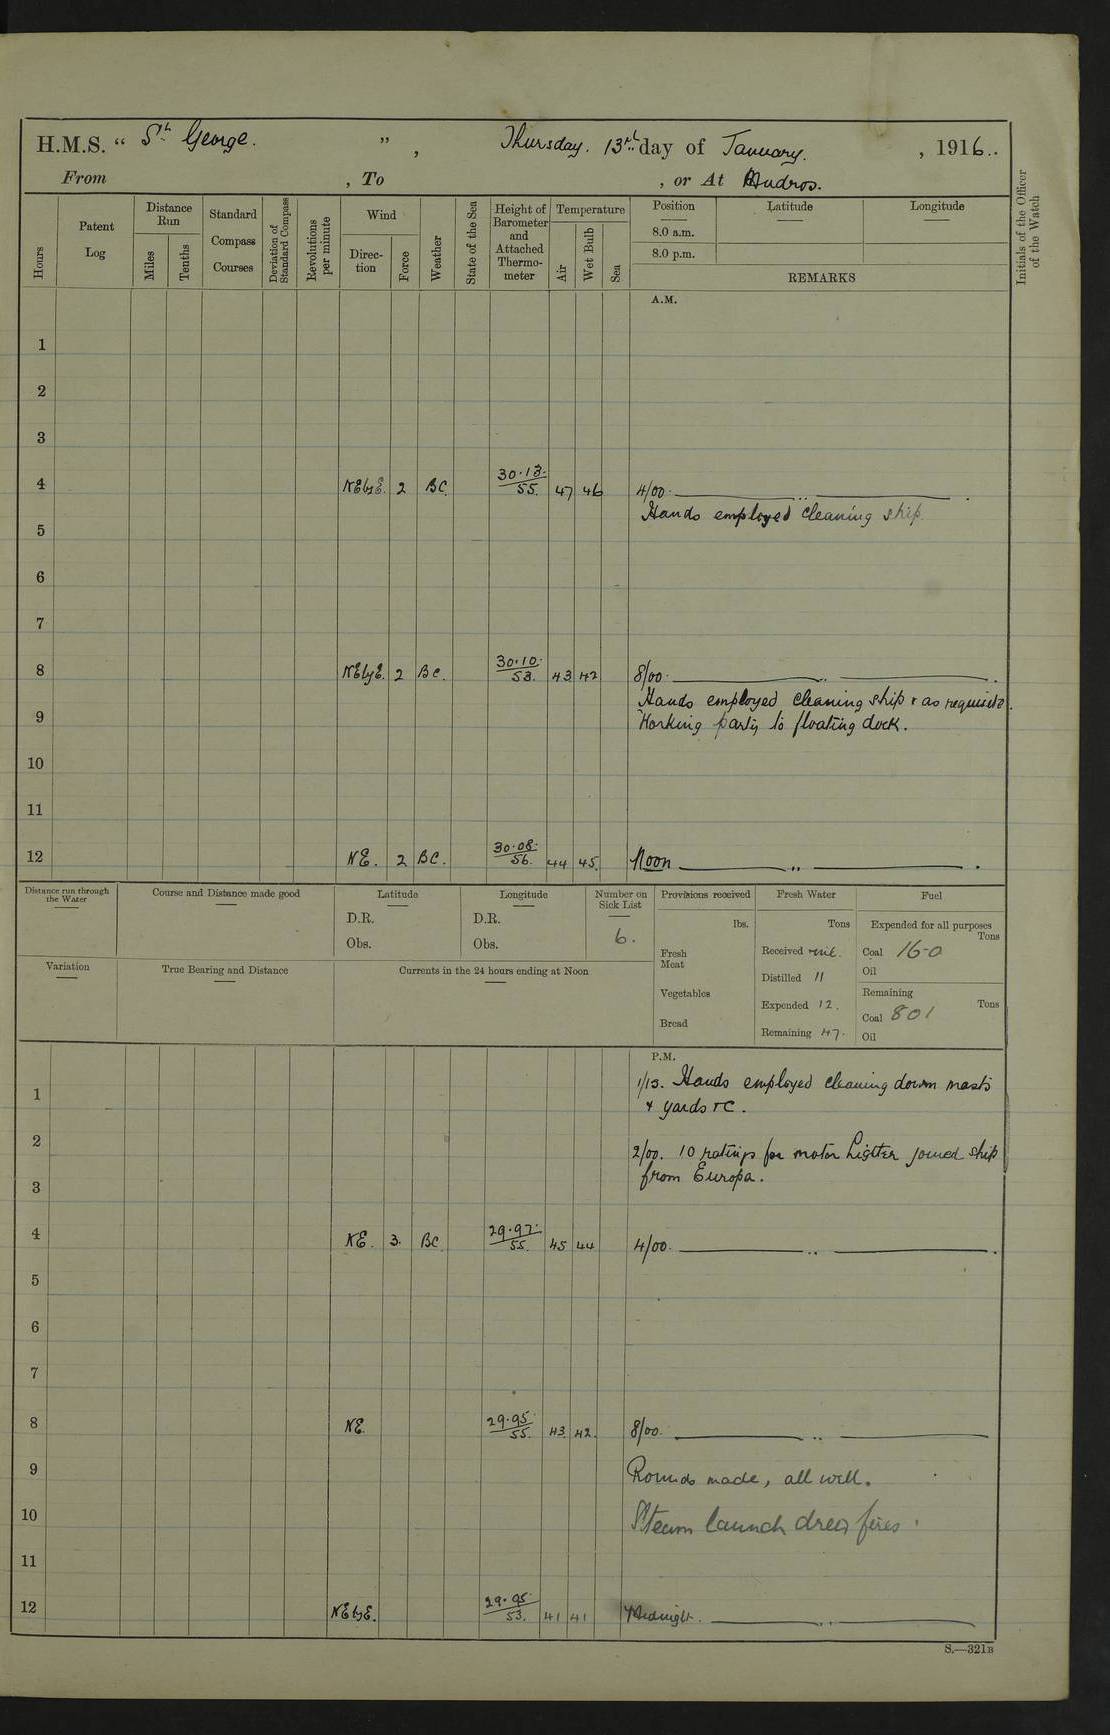 H.M.S. “ St George. ” , Thursday. 13th day of January. , 1916..
From , To , or At Mudros.
Hours
Patent Log
Distance Run
Miles
Tenths
Standard Compass Courses
Deviation of Standard Compass
Revolutions per minute
Wind
Direction
Force
Weather
State of the Sea
Height of Barometer and Attached Thermometer
Temperature
Air
Wet Bulb
Sea
Position
8.0 a.m.
8.0 p.m.
Latitude
Longitude
REMARKS
Initials of the Officer of the Watch
A.M.
1
2
3
4 NEbyE. 2 BC. 30.13. / 55. 47 46 4/00. ———— „ ———— .
Hands employed cleaning ship.
5
6
7
8 NEbyE. 2 BC. 30.10. / 53. 43 42 8/00. ———— „ ———— .
Hands employed cleaning ship & as requisite.
9 Working party to floating dock.
10
11
12 NE. 2 BC. 30.08. / 56. 44 45. Noon ———— „ ———— .
Distance run through the Water
Course and Distance made good
Latitude
D.R.
Obs.
Longitude
D.R.
Obs.
Number on Sick List
6.
Provisions received
lbs.
Fresh Meat
Vegetables
Bread
Fresh Water
Tons
Received nil.
Distilled 11
Expended 12.
Remaining 47.
Fuel
Expended for all purposes
Tons
Coal 16-0
Oil
Remaining
Tons
Coal 801
Oil
Variation
True Bearing and Distance
Currents in the 24 hours ending at Noon
P.M.
1 1/15. Hands employed cleaning down masts
& yards &c.
2 2/00. 10 ratings for motor Lighter joined ship
3 from Europa.
4 NE. 3. BC 29.97. / 55. 45 44 4/00. ———— „ ———— .
5
6
7
8 NE. 29.95. / 55. 43. 42. 8/00. ———— „ ————
9 Rounds made, all well.
10 Steam launch drew fires.
11
12 NEbyE. 29.95. / 53. 41 41 Midnight. ———— „ ————
S.—321B